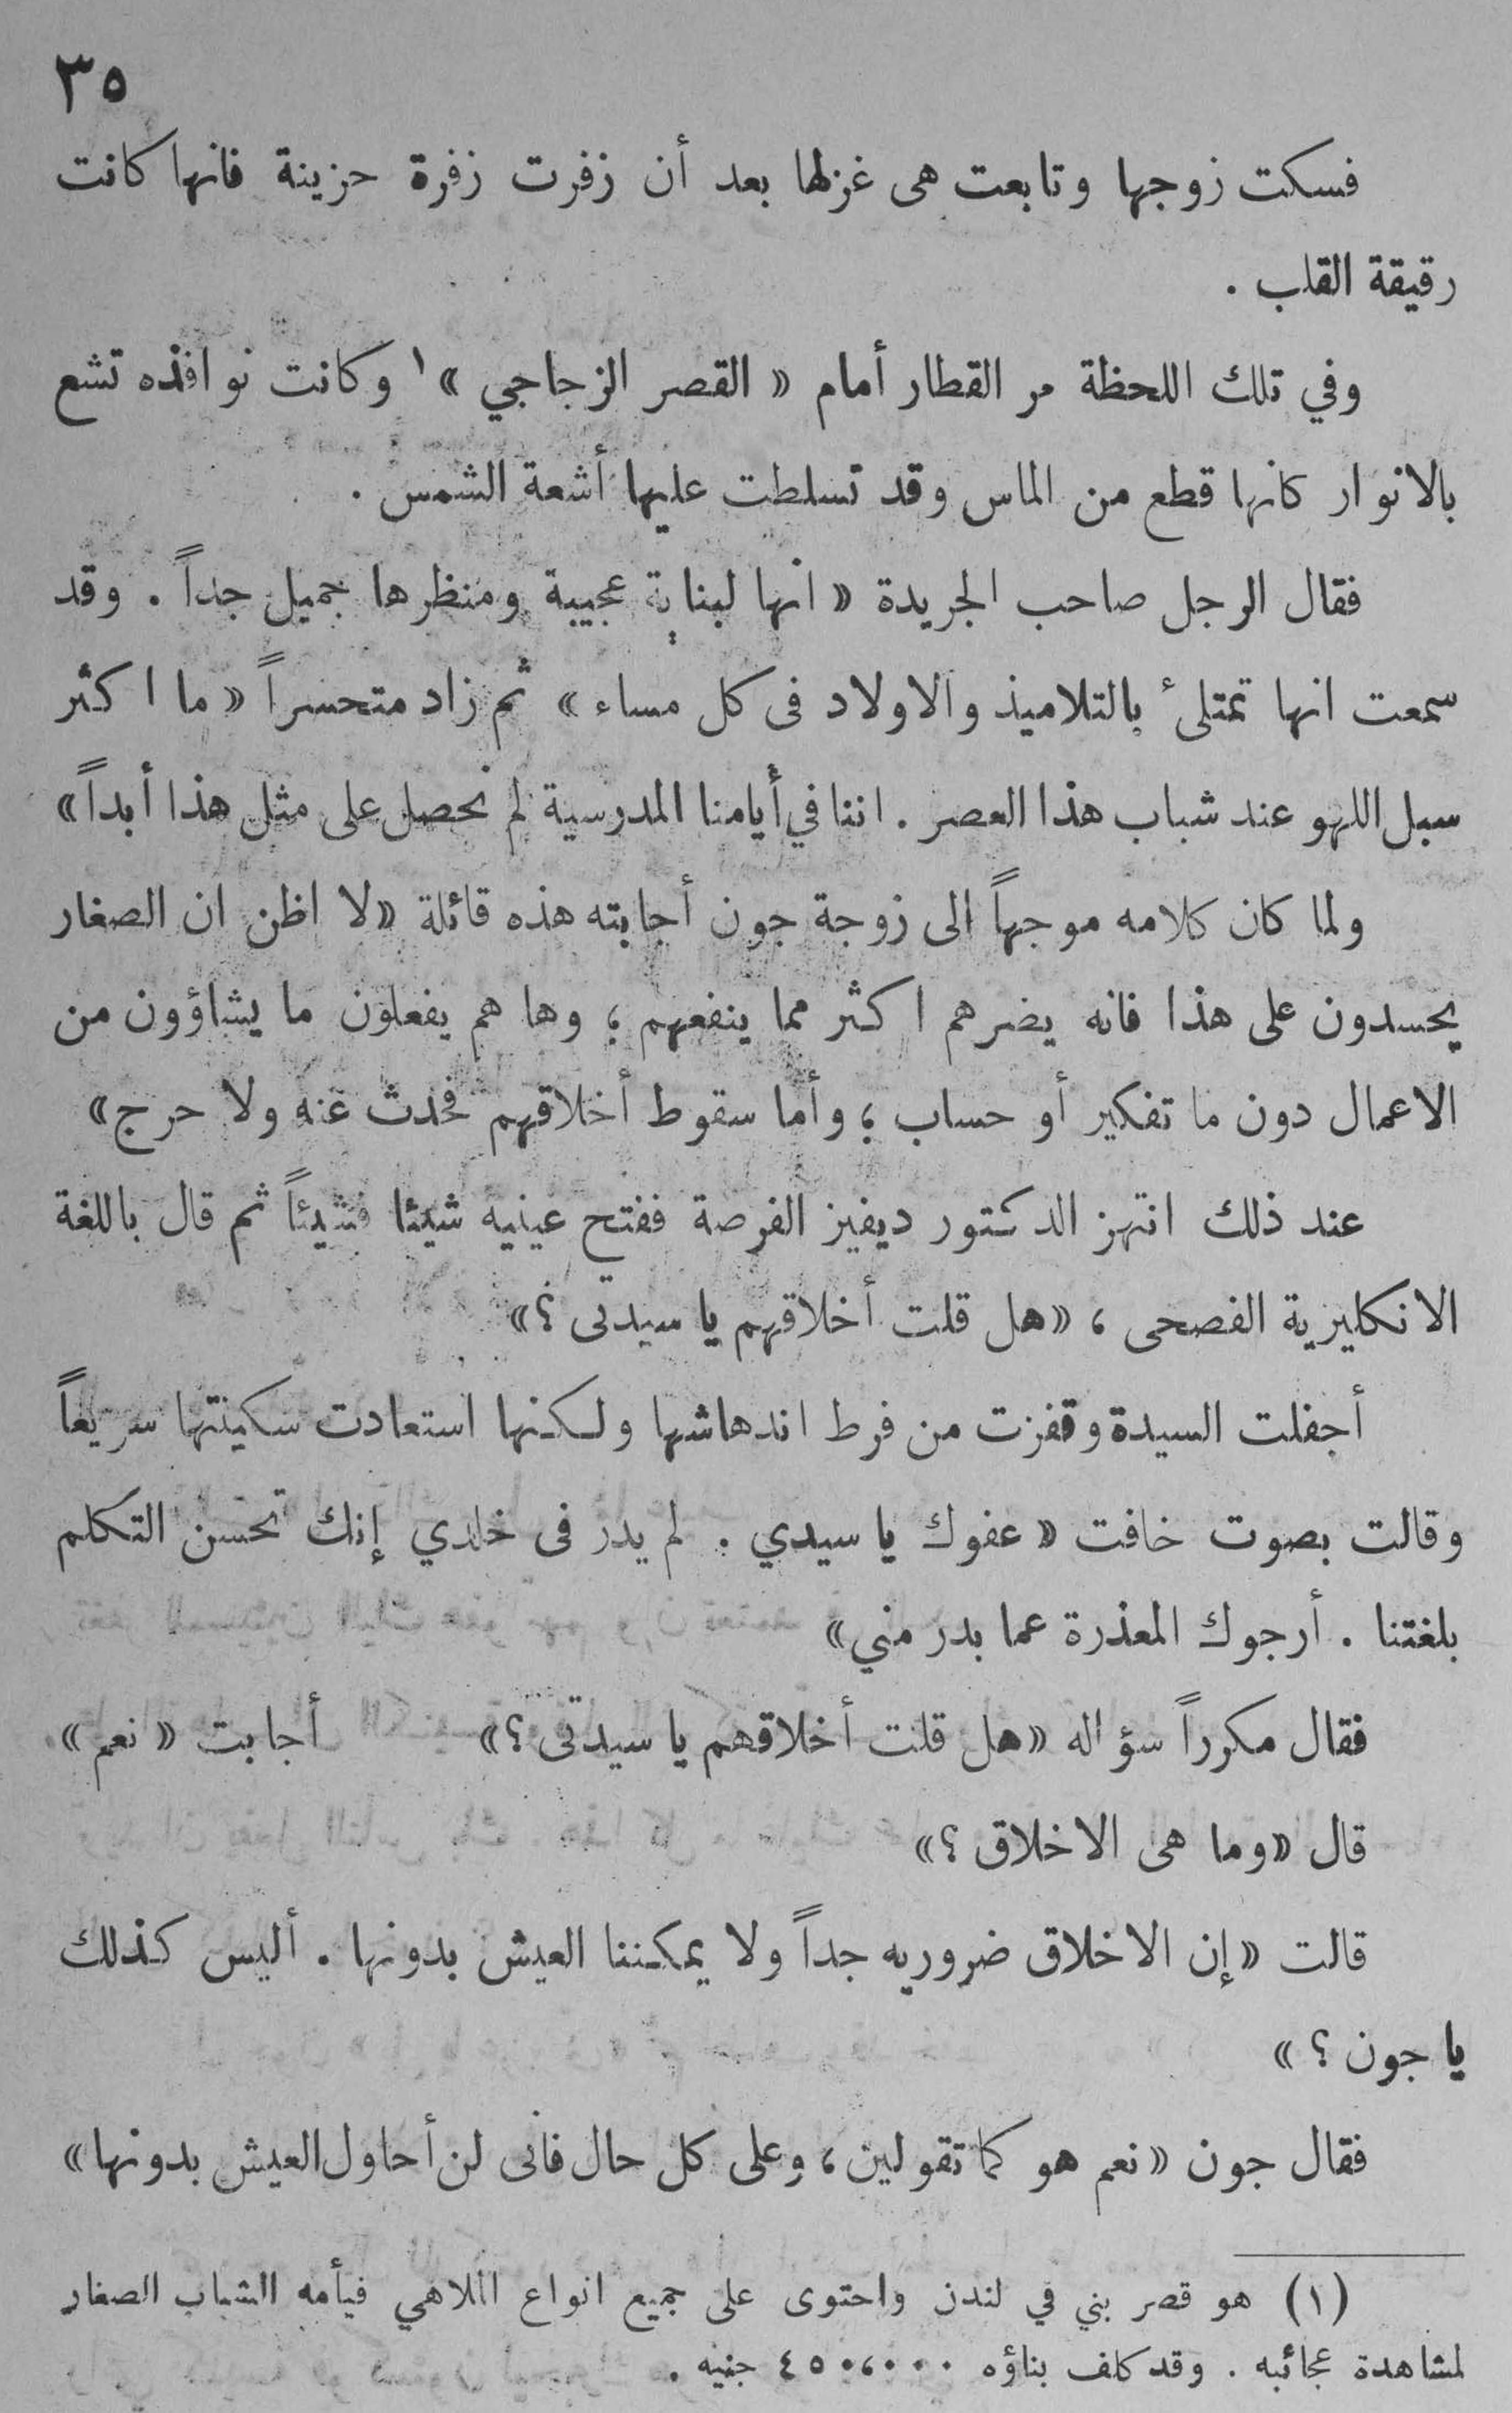 ٣٥
فسكت زوجها وتابعت هى غزلها بعد أن زفرت زفرة حزينة فانها كانت
رقيقة القلب .
وفي تلك اللحظة مر القطار أمام « القصر الزجاجي »١ وكانت نوافذه تشع
بالانوار كانها قطع من الماس وقد تسلطت عليها أشعة الشمس .
فقال الرجل صاحب الجريدة « انها لبناية عجيبة ومنظرها جميل جداً . وقد
سمعت انها تمتلئ بالتلاميذ والاولاد فى كل مساء » ثم زاد متحسراً « ما اكثر
سبل اللهو عند شباب هذا العصر . اننا في أيامنا المدرسية لم نحصل على مثل هذا أبداً »
ولما كان كلامه موجهاً الى زوجة جون أجابته هذه قائلة « لا اظن ان الصغار
يحسدون على هذا فانه يضرهم اكثر مما ينفعهم ؛ وها هم يفعلون ما يشاؤون من
الاعمال دون ما تفكير أو حساب ؛ وأما سقوط أخلاقهم فحدث عنه ولا حرج »
عند ذلك انتهز الدكتور ديفيز الفرصة ففتح عينيه شيئا فشيئاً ثم قال باللغة
الانكليرية الفصحى ، « هل قلت أخلاقهم يا سيدتى ؟ »
أجفلت السيدة وقفزت من فرط اندهاشها ولكنها استعادت سكينتها سريعاً
وقالت بصوت خافت « عفوك يا سيدي . لم يدر فى خلدي إنك تحسن التكلم
بلغتنا . أرجوك المعذرة عما بدر مني »
فقال مكرراً سؤاله « هل قلت أخلاقهم يا سيدتى ؟ » أجابت « نعم » .
قال « وما هى الاخلاق ؟ »
قالت « إن الاخلاق ضروريه جداً ولا يمكننا العيش بدونها . أليس كذلك
يا جون ؟ »
فقال جون « نعم هو كما تقولين ، وعلى كل حال فانى لن أحاول العيش بدونها »
(١) هو قصر بني في لندن واحتوى على جميع انواع الملاهي فيأمه الشباب الصغار
لمشاهدة عجائبه . وقد كلف بناؤه ٤٥٠،٠٠٠ جنيه .